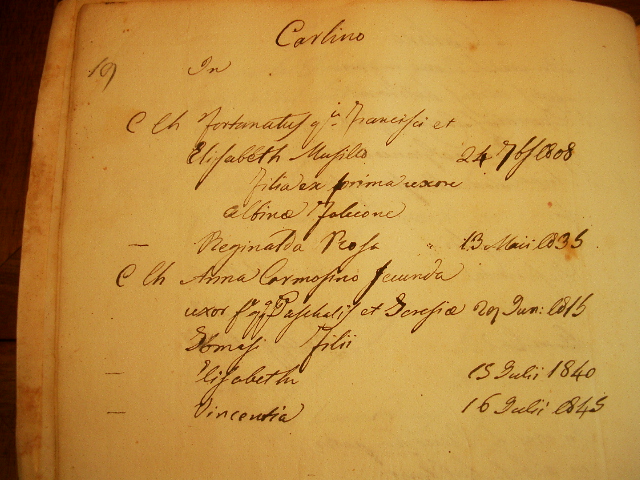 Carlino
19 In
C Ch Fortunatus q.m Francisci et
Elisabeth Musillo 24 7bs 1808
Filia ex prima uxore
Albina
— Reginalda Rosa 13 Maii 1835
C Ch Anna Cormosino secunda
uxor Paschalis et Teresiæ 29 Jun: 1815
Tomasi Filii
— Elisabeth 15 Julii 1840
— Vincentia 16 Julii 1845